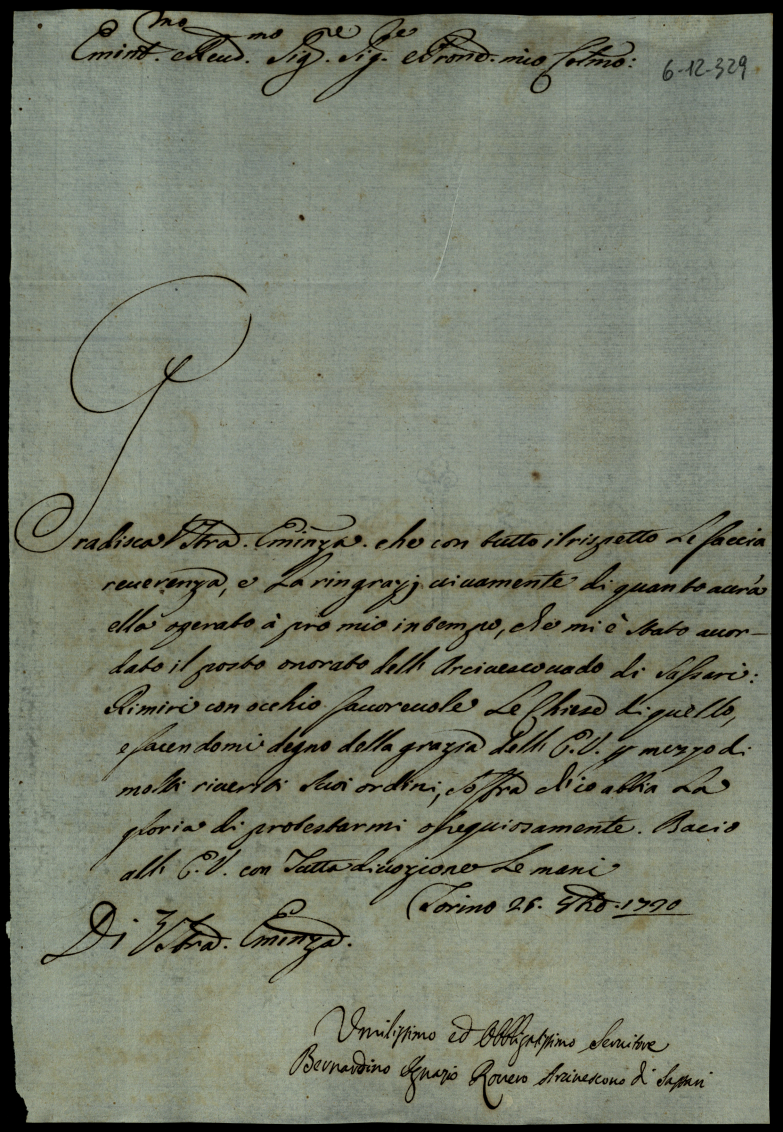 Emin.mo e Reud.mo Sig.re Sig.re e Prond. mio Colmo:
6-12-329
Gradisca Vstra. Eminza. che con tutto il rispetto Le faccia
reuerenza, e La ringrazij uiuamente di quanto aurà
ella operato à pro mio in tempo, che mi è stato accor-
dato il posto onorato dell' Arciuescouado di Sassari:
Rimiri con occhio fauoreuole Le Chiese di quello,
e facendomi degno della grazia dell' E.V. p mezzo di
molti riueriti suoi ordini, soffra ch'io abbia La
gloria di protestarmi ossequiosamente. Bacio
all' E.V. con Tutta diuozione Le mani
Torino 26.
Di Vstra. Eminza.
Vmilissimo ed Obbligatissimo Seruitore
Bernardino Ignazio Rouero Arciuescouo di Sassari